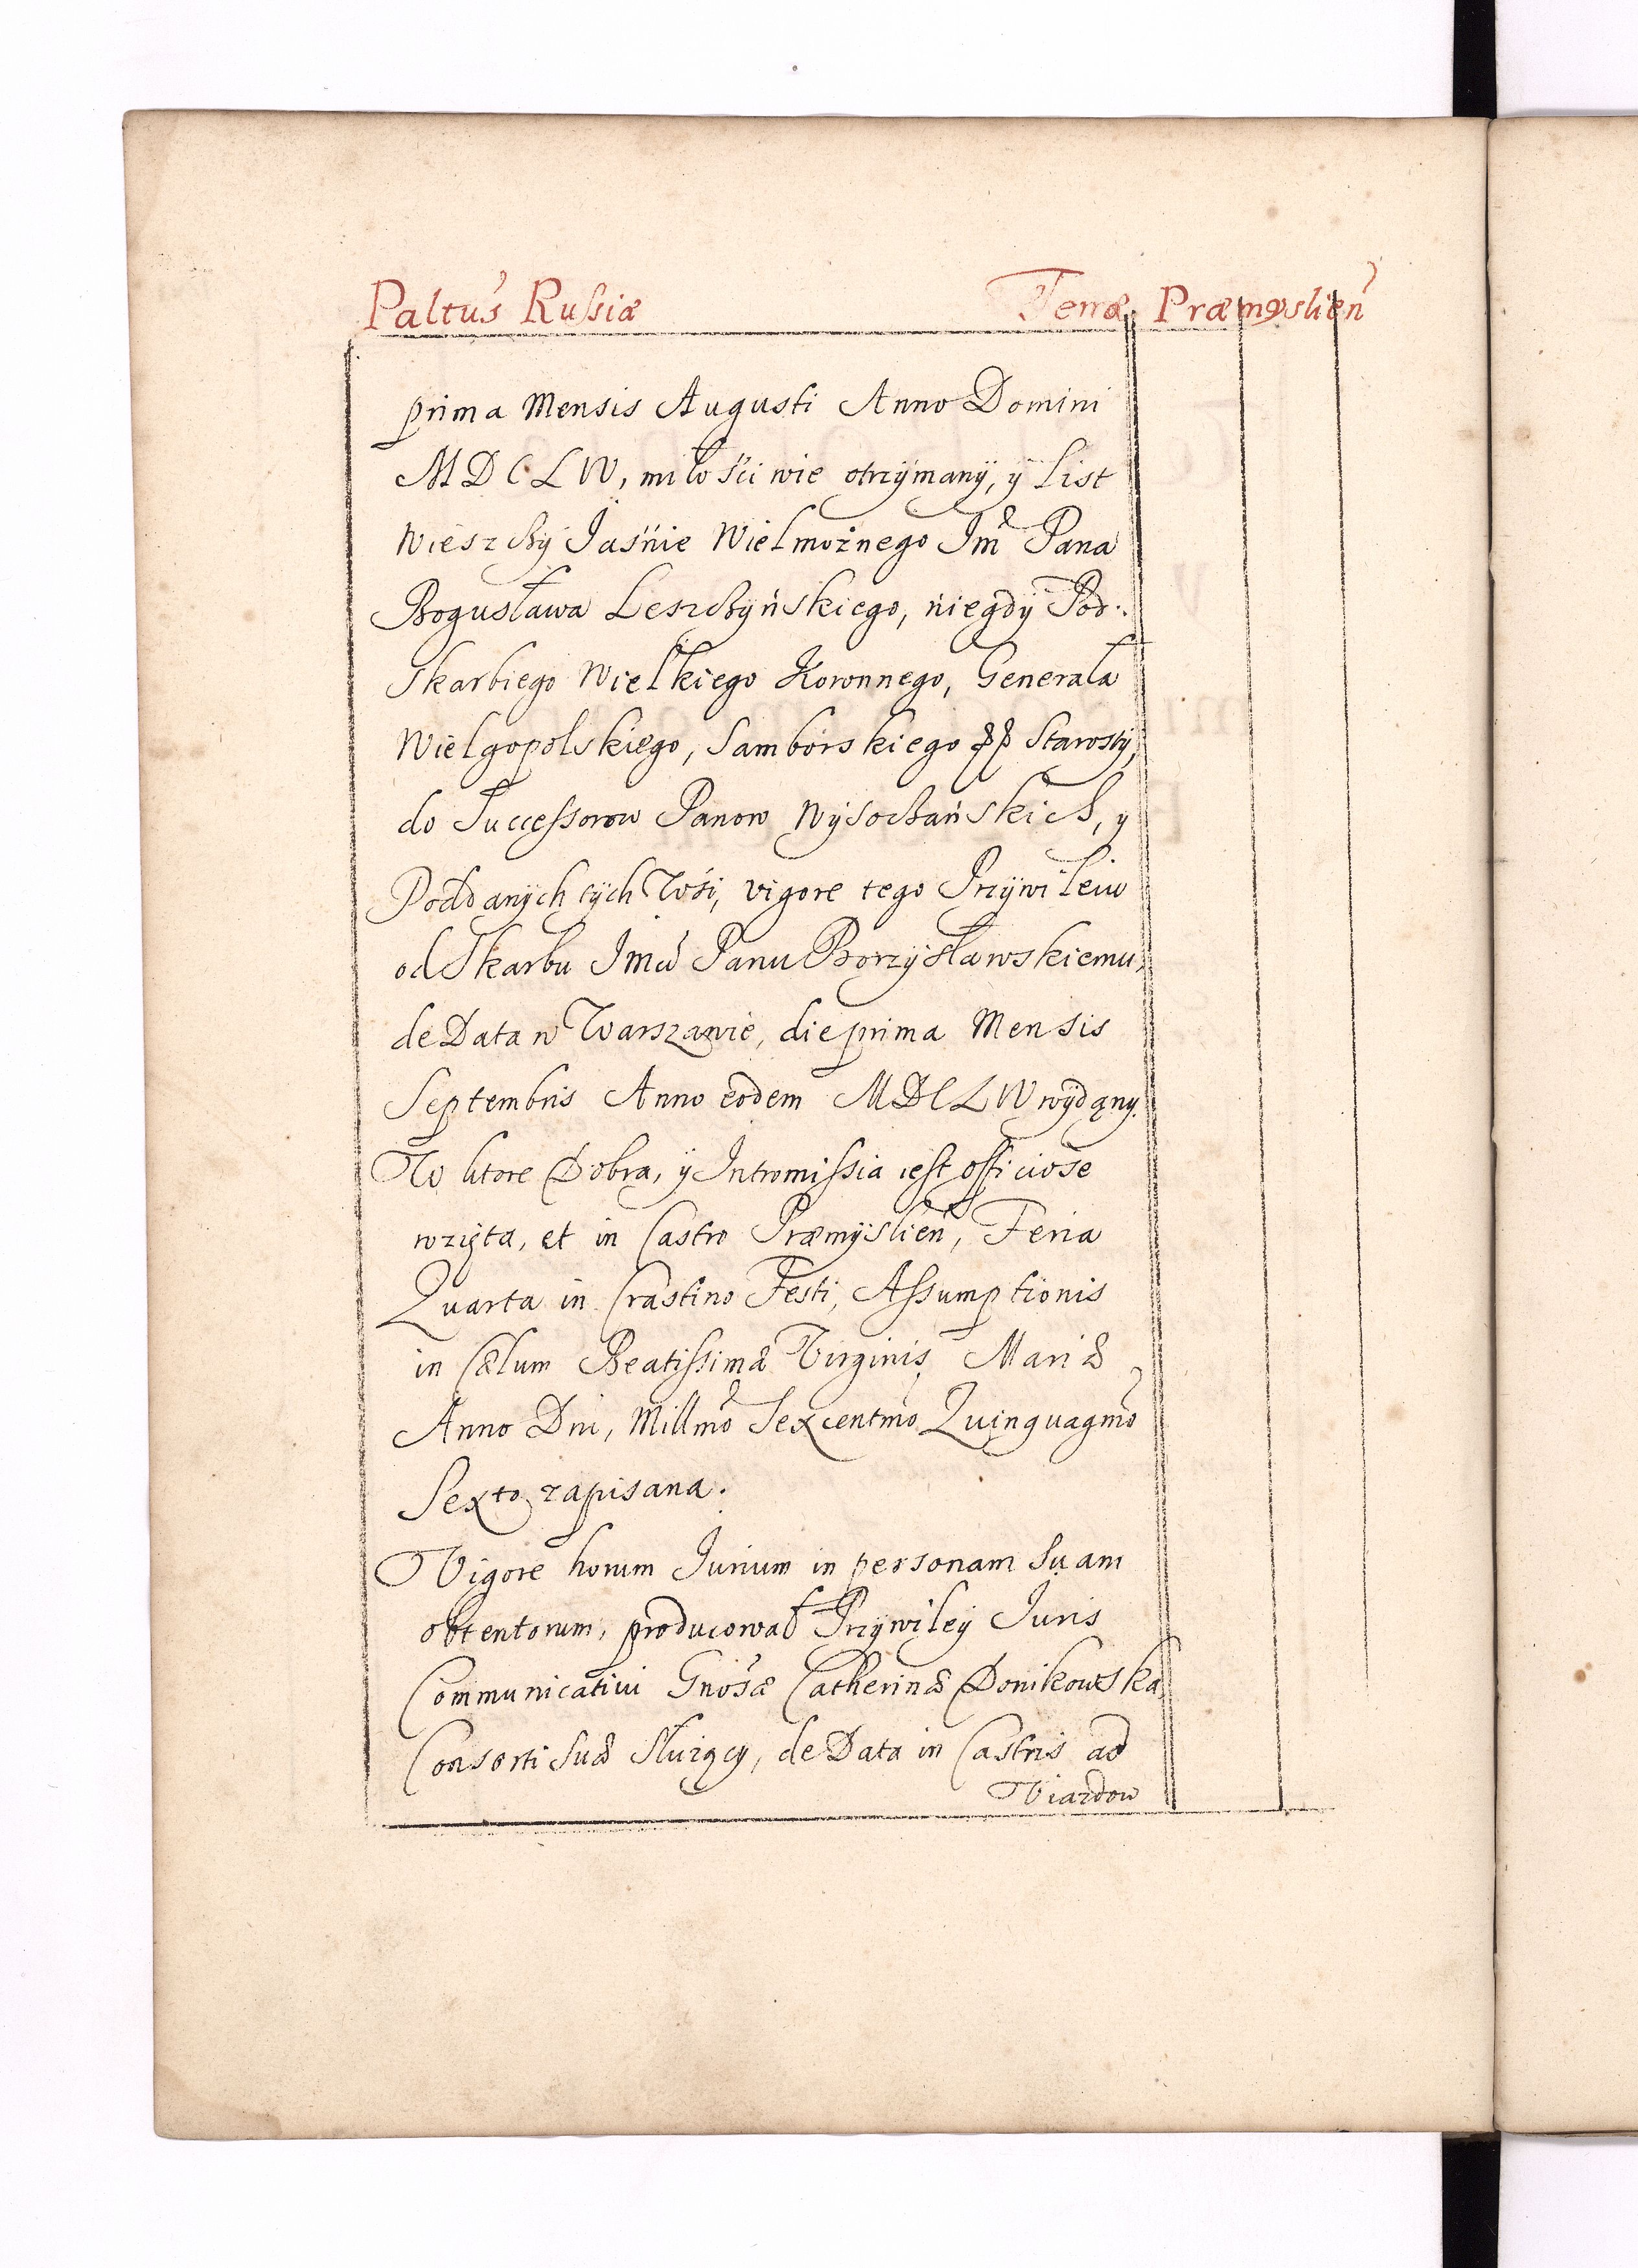 Paltus Russiæ Terræ Præmyslien
prima Mensis Augusti Anno Domini
MDCLVV, miłościwie otrzÿmanÿ, ÿ List
Wieszchÿ Jaśnie Wielmożnego Jm Pana
Bogusława Leszchÿńskiego, niegdÿ Pod:
Skarbiego Wielkiego Koronnego, Generała
Wielgopolskiego, Samborskiego Starostÿ,
do Successorow Panow Wÿsochańskich, y
Poddanÿch tÿch Wśi, vigore tego Przÿwileiu
od Skarbu Jmci Panu Borzÿsławskiemu,
de Data w Warszawie, die prima Mensis
Septembris Anno eodem MDCLVV wÿdany.
Na ktore Dobra, ÿ Intromissia iest officiose
wzięta, et in Castro Præmÿslien, Feria
Quarta in Crastino Festi, Assumptionis
in Cælum Beatissimæ Virginis Mariæ
Anno Dni, Millmo Sexcentmo Quinquagmo
Sexto zapisana.
Vigore horum Jurium in personam Suam
obtentorum, producował Przÿwileÿ Juris
Communicativi Gnosæ Catherinæ Donikowska
Consorti Suæ Służącÿ, de Data in Castris ad
Viazdow